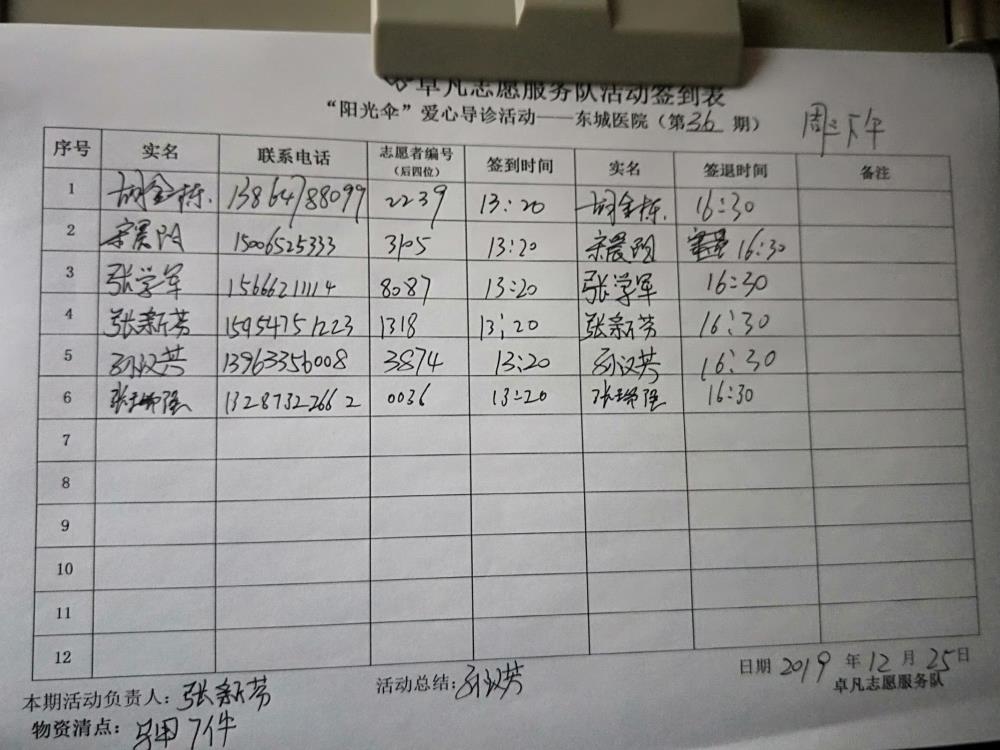 卓凡志愿服务队活动签到表
“阳光伞”爱心导诊活动——东城医院（第36期） 周三下午
序号 实名 联系电话 志愿者编号（后四位） 签到时间 实名 签退时间 备注
1 胡金栋. 13864788099 2239 13:20 胡金栋. 16:30
2 宋晨阳 15006525333 3105 13:20 宋晨阳 16:30
3 张学军 15666211114 8087 13:20 张学军 16:30
4 张新芳 15954751223 1318 13:20 张新芳 16:30
5 孙汉芳 13963356008 3874 13:20 孙汉芳 16:30
6 13287322662 0036 13:20 16:30
7
8
9
10
11
12
日期 2019 年 12 月 25 日
本期活动负责人：张新芳 活动总结：孙汉芳 卓凡志愿服务队
物资清点：马甲7件